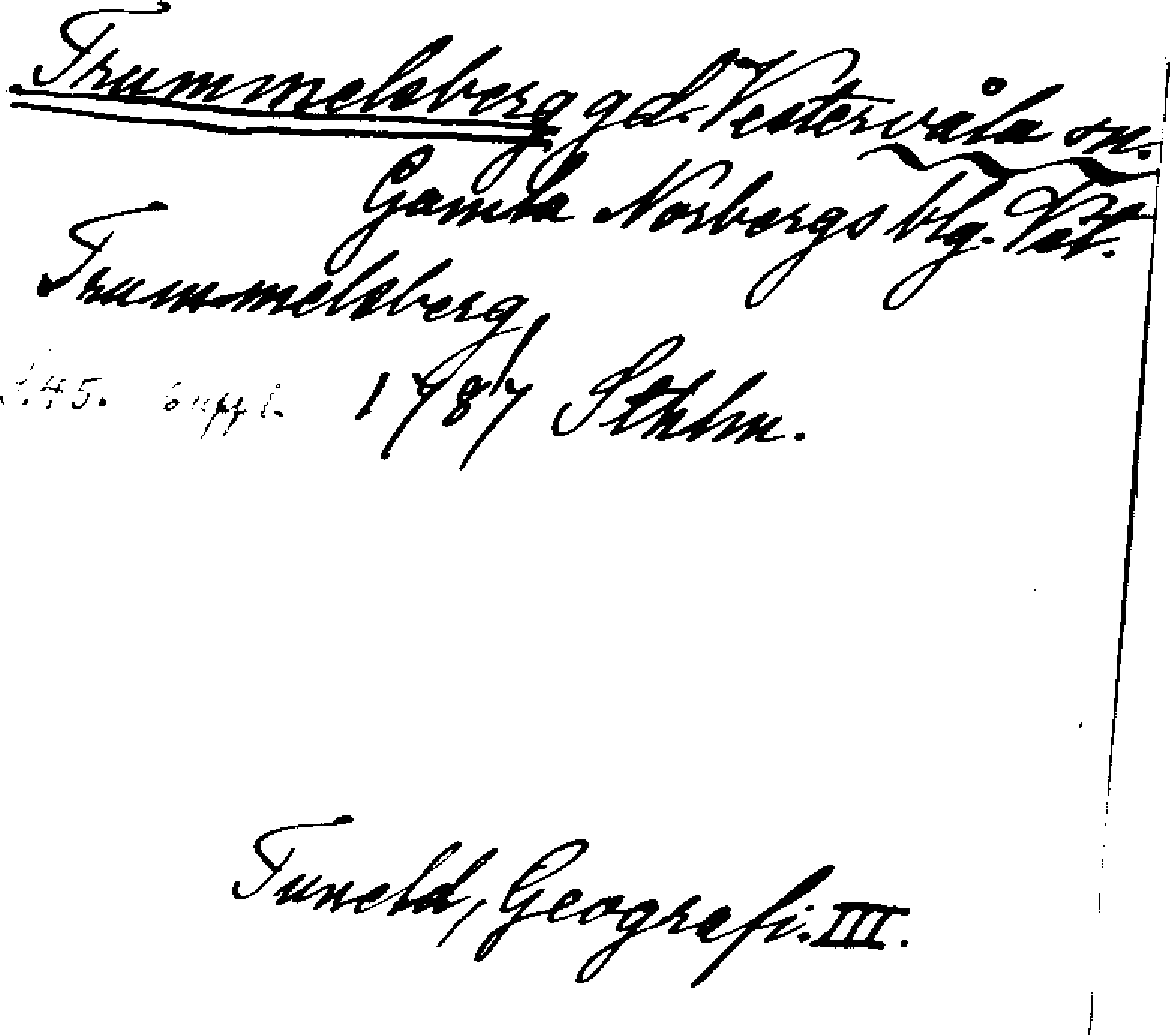 Trummelsberg gd. Vestervåla sn.
Gamla Norbergs blg. Vstm.
Trummelsberg
s. 45. suppl. 1787 Sthlm.
Tuneld, Geografi. III.